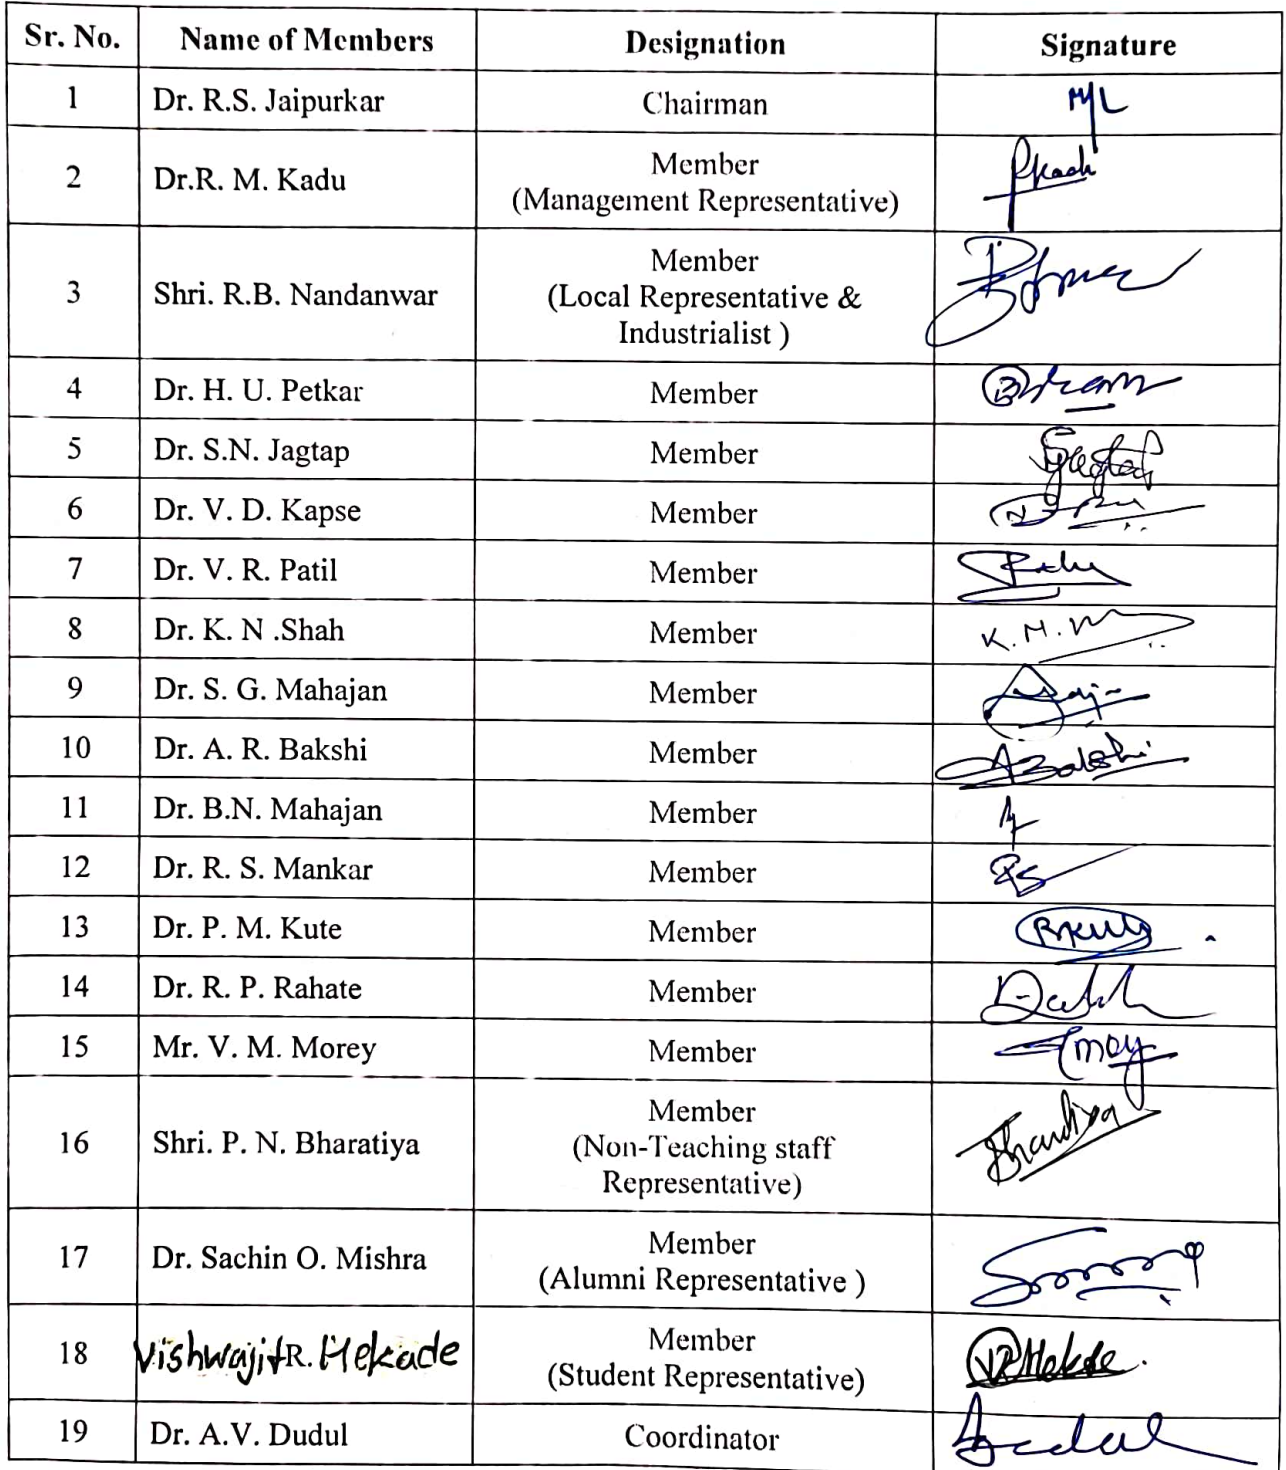 Sr. No. Name of Members Designation Signature
1 Dr. R.S. Jaipurkar Chairman
2 Dr.R. M. Kadu Member
(Management Representative)
3 Shri. R.B. Nandanwar Member
(Local Representative &
Industrialist )
4 Dr. H. U. Petkar Member
5 Dr. S.N. Jagtap Member
6 Dr. V. D. Kapse Member
7 Dr. V. R. Patil Member
8 Dr. K. N .Shah Member
9 Dr. S. G. Mahajan Member
10 Dr. A. R. Bakshi Member ABakshi
11 Dr. B.N. Mahajan Member
12 Dr. R. S. Mankar Member
13 Dr. P. M. Kute Member
14 Dr. R. P. Rahate Member
15 Mr. V. M. Morey Member
16 Shri. P. N. Bharatiya Member
(Non-Teaching staff
Representative)
17 Dr. Sachin O. Mishra Member
(Alumni Representative )
18 Vishwajit R. Mekade Member
(Student Representative)
19 Dr. A.V. Dudul Coordinator